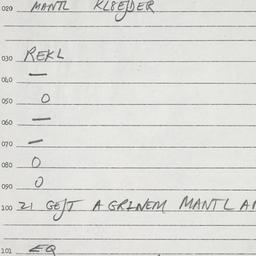 020 MANTL KLBEJDER
030 REKL
040 —
050 O
060 —
070 —
080 O
090 O
100 21 GEJT A GRINEM MANTL A
101 EQ